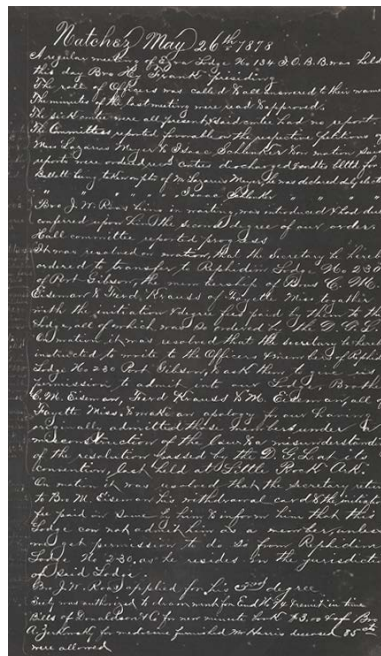 Natchez May 26th 1878
A regular meeting of Ezra Lodge No 134 I.O.B.B. was held
this day Bro Hy Frank presiding
The roll of Officers was called & all answered to their names
The minutes of the last meeting were read & approved.
The sick were all present & said had no report
The Committees reported favorable on the respective petitions of
Mess Lazarus Meyer & Isaac & on motion
reports were ordered recd discharged & 
Ballott being taken of M Lazarus Meyer, he was declared duly elected
" " " " Isaac " " "
Bro. J. W. Ross being in waiting, was introduced & had duly
conferred upon him the second degree of our order.
Hall committee reported progress
It was resolved on motion, that the Secretary be hereby
ordered to transfer to Rephidim Lodge No 230
of Port Gibson, the membership of Bros C. M.
Eiseman & Ferd Krauss of Fayette Miss together
with the initiation & degree fees paid by them to the
Lodge, all of which was so ordered by the D. G. L.
On motion it was resolved that the secretary be hereby
instructed to write to the Officers & members of Rephidim
Lodge No 230 Port Gibson, & ask them to give us
permission to admit into our Lodge, Brothers
C. M. Eiseman, Ferd Krauss & M. Eiseman, all of
Fayette Miss. & make an apology for our having
originally admitted these Brothers under a
misconstruction of the law & a misunderstanding
of the resolution passed by the D. G. L. at its
Convention, last held at Little Rock Ark.
On motion it was resolved, that the secretary return
to Bro M. Eiseman his withdrawal card & the initiation
fee paid in same by him & inform him that this
Lodge can not admit him as a member, unless
we get permission to do so from Rephidim
Lodge No 230, as he resides in the jurisdiction
of said Lodge.
Bro J. W. Ross applied for his 3rd degree
was authorized to & remit in time
Bills of Donaldson & Co for new minute book $3.00 & of Bro
A for medicine furnished Mr Harris deceased 85 cts
were allowed